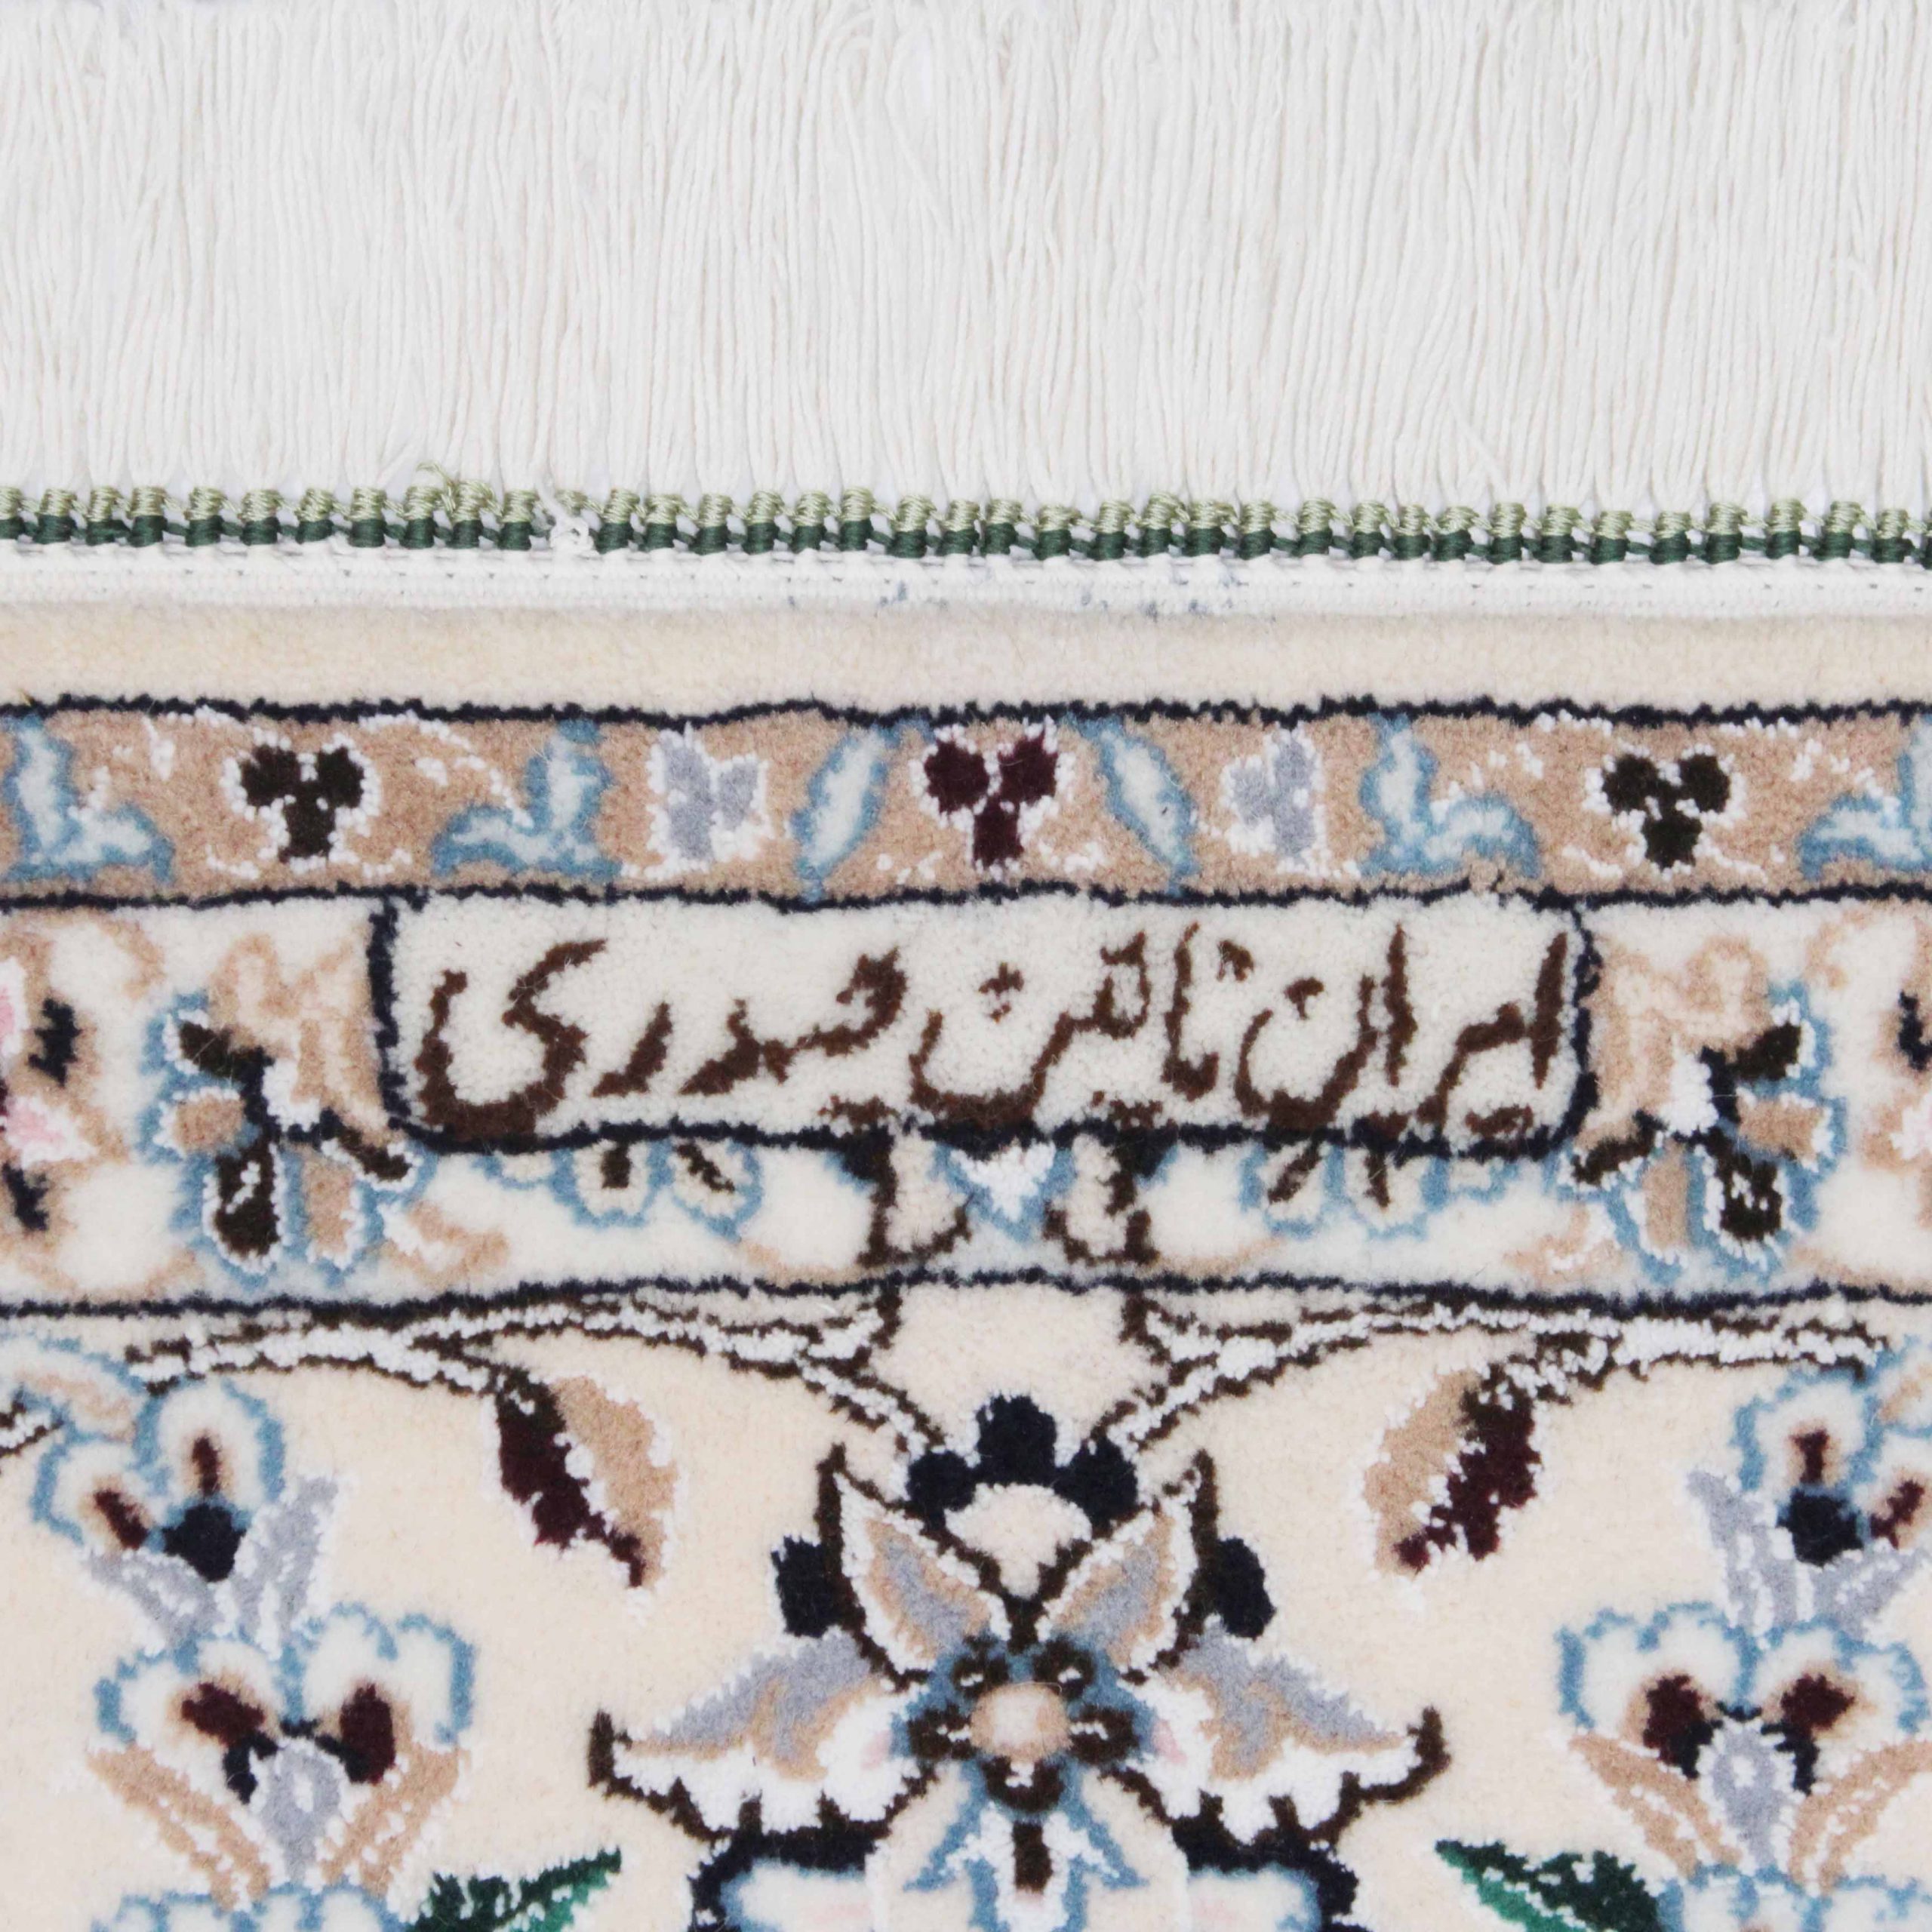 ایران نائن صدری